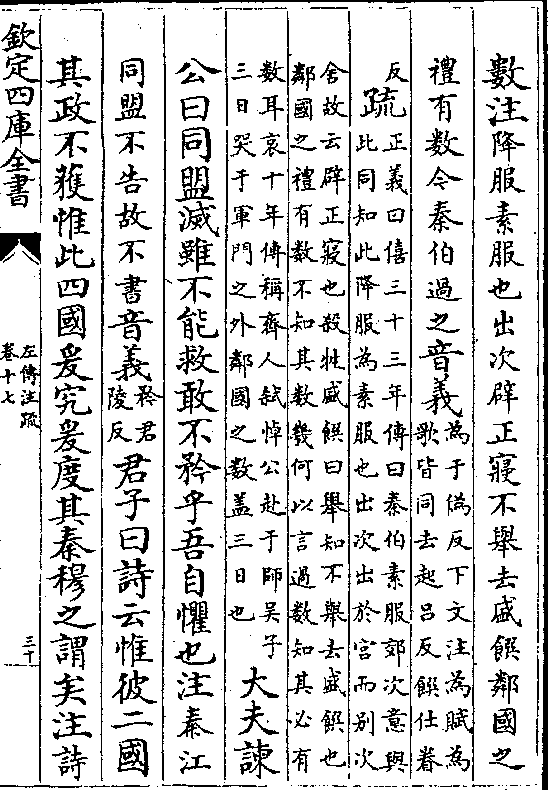 數注降服素服也出次辟正寢不舉去盛饌鄰國之
禮有数今秦伯過之音義為于偽反下文注為賦為
歌皆同去起呂反饌仕眷
反疏正義曰僖三十三年傳曰秦伯素服郊次意與
此同知此降服為素服也出次出於宮而別次
舍故云辟正寢也殺牲盛饌曰舉知不舉去盛饌也
鄰國之禮有数不知其数幾何以言過数知其必有
数耳哀十年傳稱齊人弑悼公赴于師吳子
三日哭于軍門之外鄰國之数盖三日也大夫諫
公曰同盟滅雖不能救敢不矜乎吾自懼也注秦江
同盟不告故不書音義矜君
陵反君子曰詩云惟彼二國
其政不獲惟此四國爰究爰度其秦穆之謂矣注詩
欽定四庫全書
左傳注疏
卷十七
三十